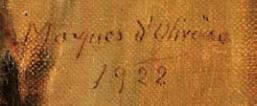 Marques d'Oliveira
1922